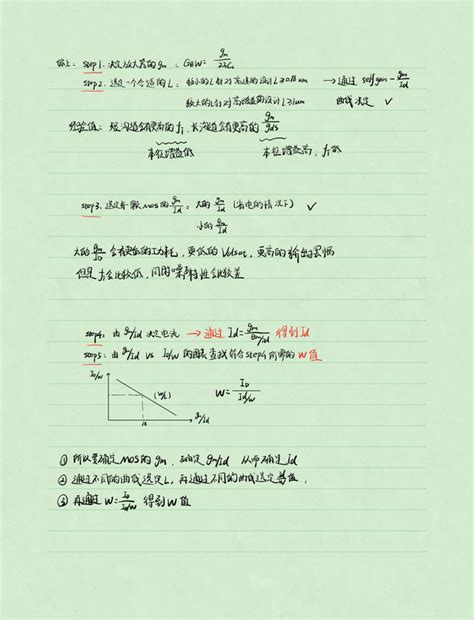 综上: step1. 决定放大器的 gm : GBW = gm/2πCL
step2. 选定一个合适的 L : 较小的L针对高速的设计 L≥0.18um → 通过 selfgain - gm/Id
较大的L针对高增益的设计 L≥1um 曲线决定 ✓
经验值: 短沟道会有更高的 ft, 长沟道会有更高的 gm/gds
本征增益低 本征增益高, ft低
step3. 选定每颗mos的 gm/Id : 大的 gm/Id (省电的情况下) ✓
小的 gm/Id
大的 gm/ID 会有更低的功耗, 更低的 Vdsat, 更高的输出摆幅
但是 ft会比较低, 同时噪声特性会比较差
step4. 由 gm/Id 决定电流 → 通过 Id = gm/(gm/Id) 得到 Id
step5. 由 gm/Id vs ID/W 的图表查找符合step4所需的 W值
ID/W
(W/L)
W = ID/(Id/W)
gm/Id
10
① 所以要确定mos的 gm, 确定 gm/Id 从而确定 Id
② 通过不同的曲线选定L, 再通过不同的曲线选定
③ 再通过 W = ID/(Id/W) 得到W值